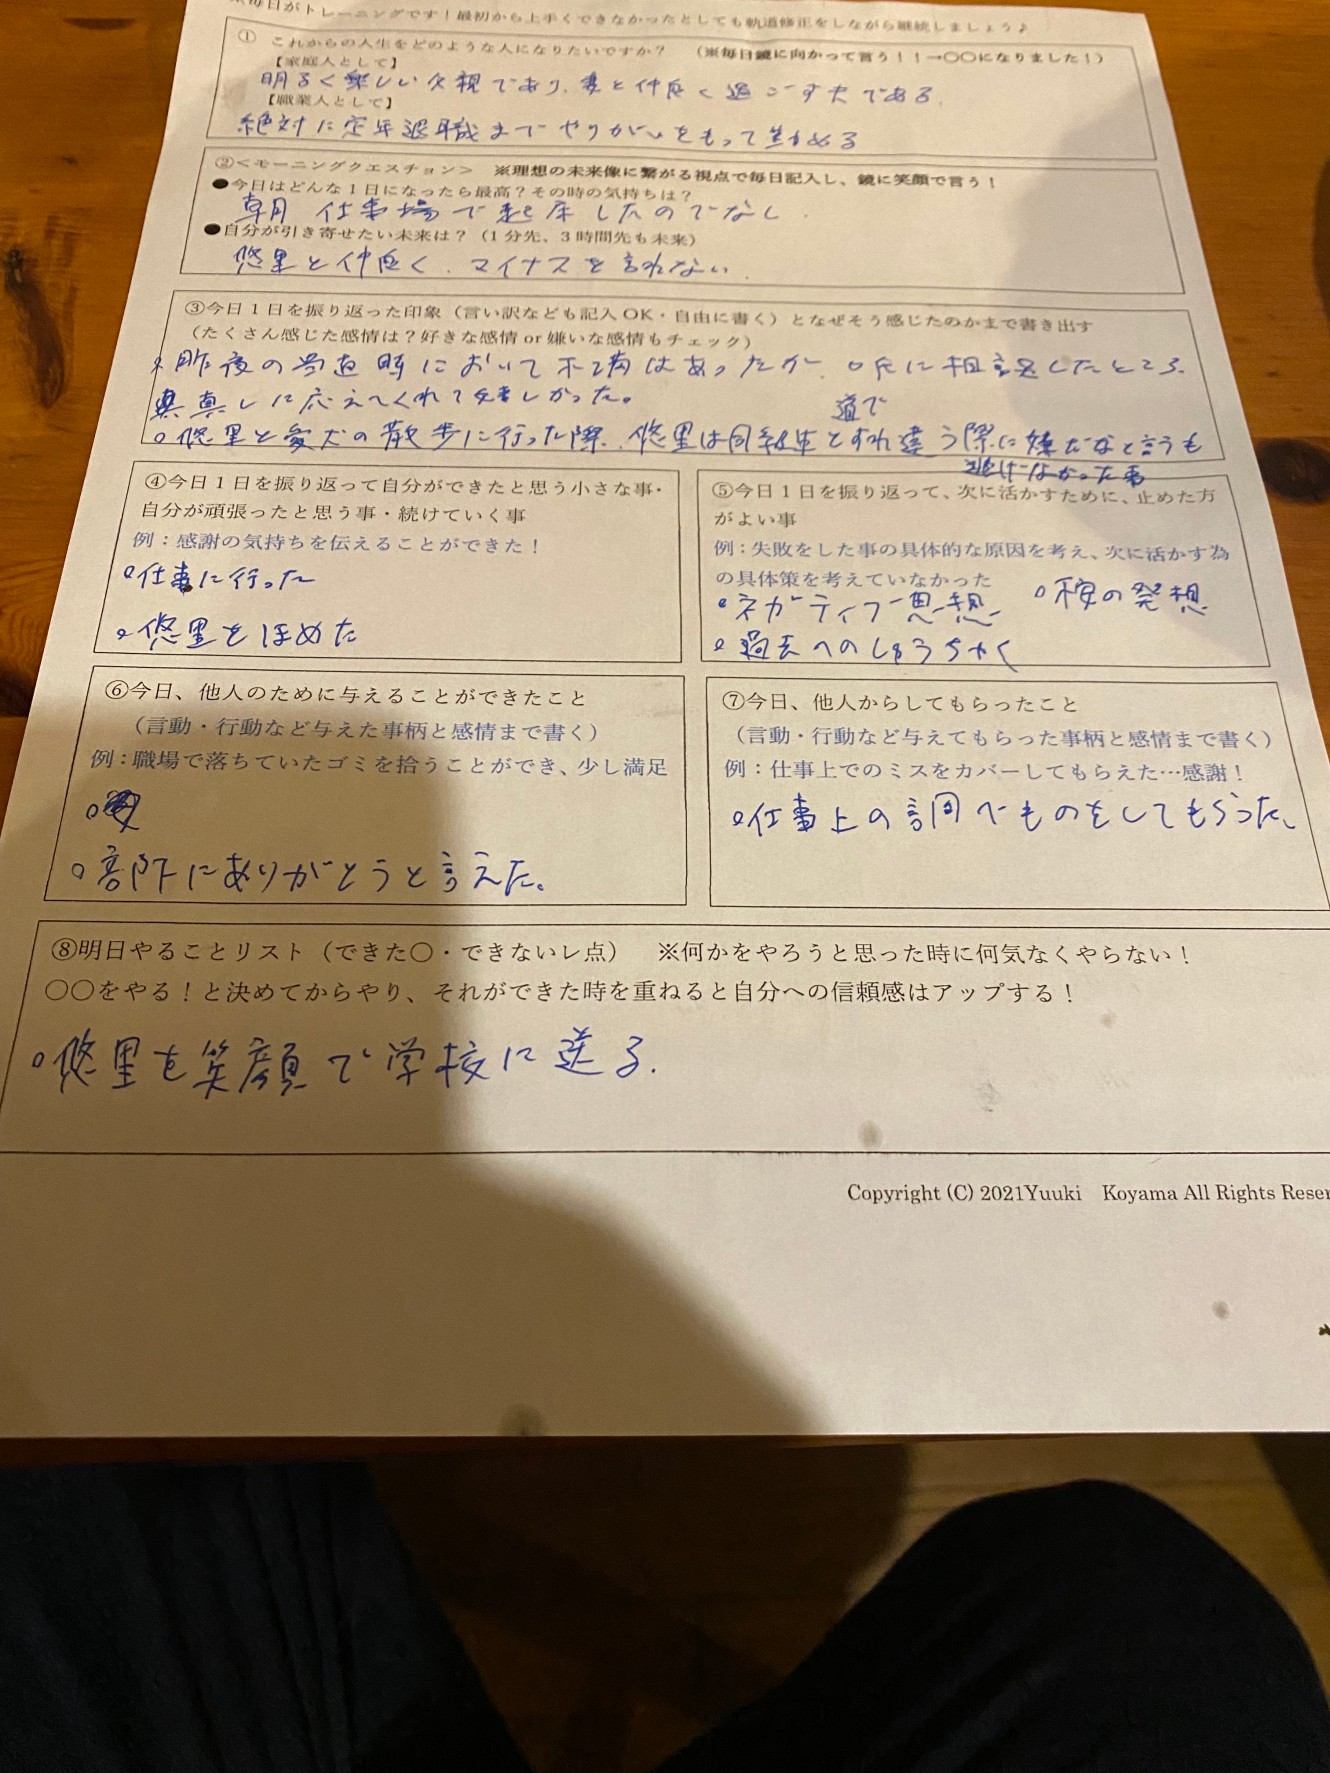 ※毎日がトレーニングです！最初から上手くできなかったとしても軌道修正をしながら継続しましょう♪
① これからの人生をどのような人になりたいですか？ （※毎日鏡に向かって言う！！→〇〇になりました！）
【家庭人として】
明るく楽しい父親であり、妻と仲良く過ごす夫である。
【職業人として】
絶対に定年退職までやりがいをもって勤める
②＜モーニングクエスチョン＞ ※理想の未来像に繋がる視点で毎日記入し、鏡に笑顔で言う！
●今日はどんな１日になったら最高？その時の気持ちは？
朝、仕事場で起床したのでなし．
●自分が引き寄せたい未来は？（１分先、３時間先も未来）
悠里と仲良く、マイナスを言わない．
③今日１日を振り返った印象（言い訳なども記入 OK・自由に書く）となぜそう感じたのかまで書き出す
（たくさん感じた感情は？好きな感情 or 嫌いな感情もチェック）
。昨夜の当直時において不満はあったが、〇氏に相談したところ、
真しに応えてくれて嬉しかった。
道で
。悠里と愛犬の散歩に行った際、悠里は同級生とすれ違う際に嫌だなと言うも
逃げなかった事
④今日１日を振り返って自分ができたと思う小さな事・
自分が頑張ったと思う事・続けていく事
例：感謝の気持ちを伝えることができた！
。仕事に行った
。悠里をほめた
⑤今日１日を振り返って、次に活かすために、止めた方
がよい事
例：失敗をした事の具体的な原因を考え、次に活かす為
の具体策を考えていなかった
。ネガティブ思想 。の発想
。過去へのしゅうちゃく
⑥今日、他人のために与えることができたこと
（言動・行動など与えた事柄と感情まで書く）
例：職場で落ちていたゴミを拾うことができ、少し満足
。部下にありがとうと言えた。
⑦今日、他人からしてもらったこと
（言動・行動など与えてもらった事柄と感情まで書く）
例：仕事上でのミスをカバーしてもらえた…感謝！
。仕事上の調べものをしてもらった。
⑧明日やることリスト（できた〇・できないレ点） ※何かをやろうと思った時に何気なくやらない！
〇〇をやる！と決めてからやり、それができた時を重ねると自分への信頼感はアップする！
。悠里を笑顔で学校に送る．
Copyright (C) 2021Yuuki Koyama All Rights Reser